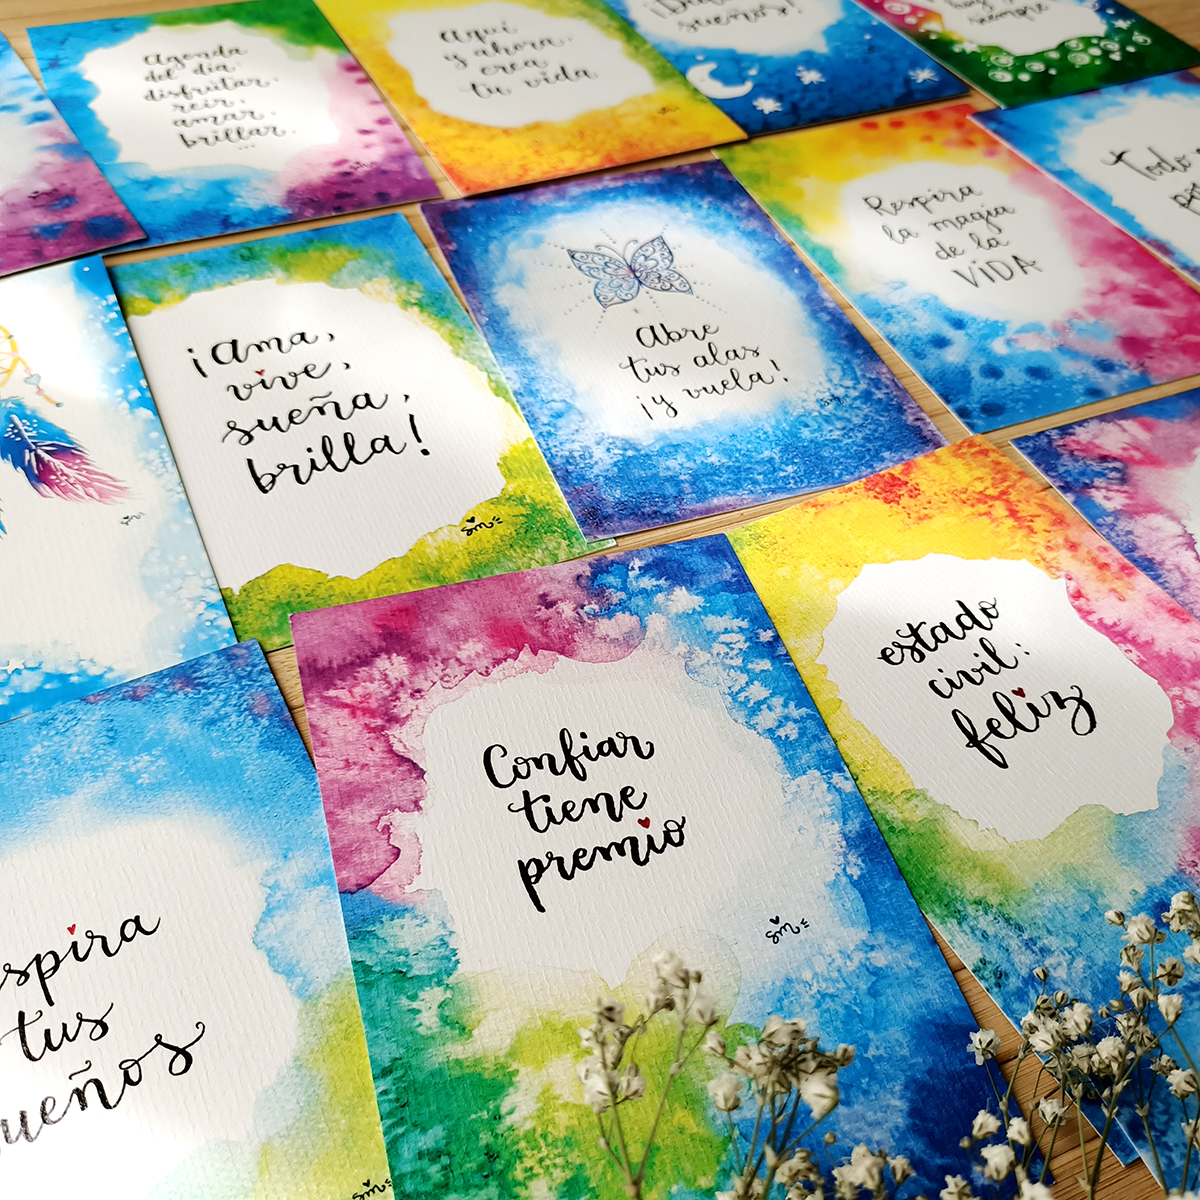 Agenda
del día
disfrutar,
reir,
amar,
brillar.
...
Aquí
y ahora,
crea
tu vida
sueños!
hoy y
siempre
¡Ama,
vive,
sueña,
brilla!
sm
Abre
tus alas
¡y vuela!
Respira
la magia
de la
VIDA
Todo
Confiar
tiene
premio
sm
estado
civil:
feliz
spira
tus
ueños
sm